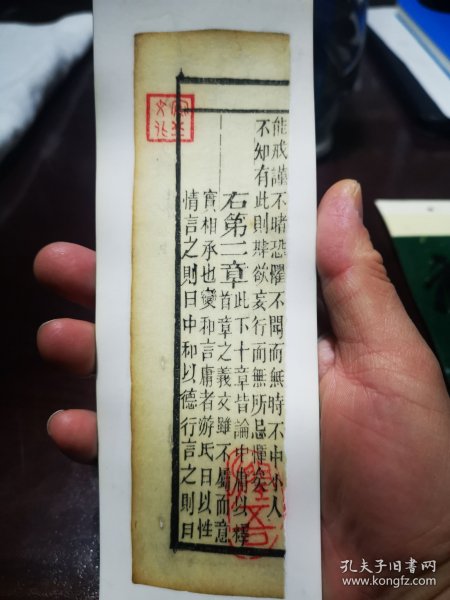 能戒謹不睹恐懼不聞而無時不中小人
不知有此則肆欲妄行而無所忌憚矣
右第二章此下十章皆論中庸以釋
首章之義文雖不屬而意
實相承也變和言庸者游氏曰以性
情言之則曰中和以德行言之則曰
孔夫子旧书网
www.kongfz.com